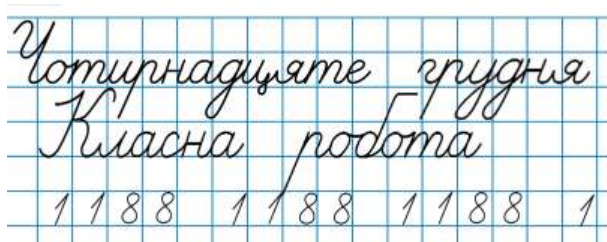 Чотирнадцяте грудня
Класна робота
1188 1188 1188 1